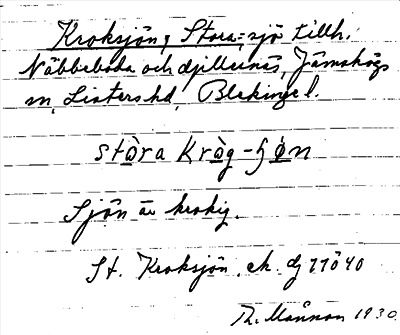 Kroksjön, Stora, = sjö tillh.
Näbbeboda och Djillernäs, Jämshögs
sn, Listers hd, Blekinge l.
stòra kròg-ʃön
Sjön är krokig.
St. Kroksjön, ek. dj 77ö40
Th. Månsson 1930.